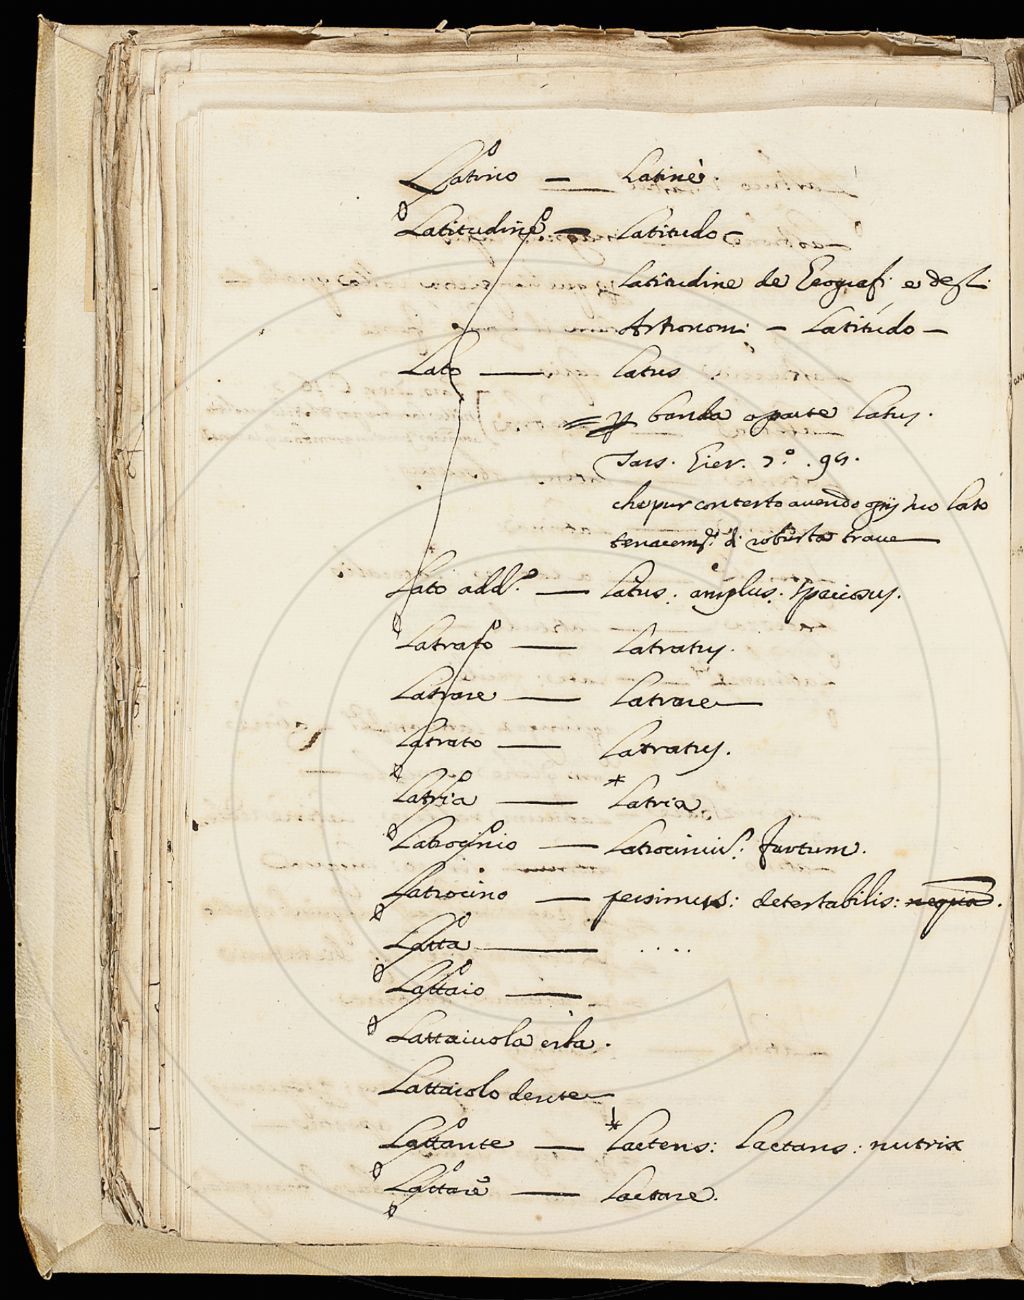 Latino — Latinè.
Latitudine — Latitudo
Latitudine de Geografi e degl.
Astronomi — Latitudo —
Lato — latus
banda o parte latus.
Tass. Gier. 7.° . 94.
che pur contesto avendo
tenacem.te di robusta trave
Lato add.o — latus: amplus: spaciosus.
Latrato — Latratus.
Latrare — Latrare
Latrato — Latratus.
Latria — * latria
Latrocinio — Latrocinius: furtum.
Latrocino — pessimus: detestabilis:
Latta — ....
Lattaio —
Lattaiuola erba.
Lattaiolo dente
Lattante — * lactens: lactans: nutrix
Lattare — Lactare.